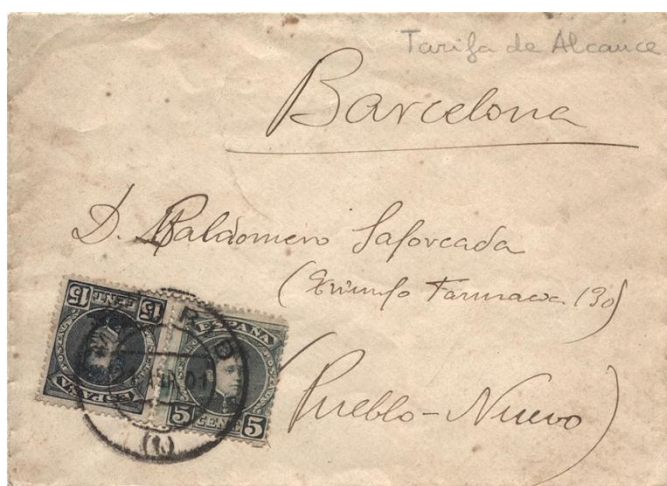 Tarifa de Alcance
Barcelona
D. Baldomero Saforcada
(Triunfo Farmacia 130)
(Pueblo-Nuevo)
15 CENT 15
ESPAÑA
ESPAÑA
5 CENT 5
(1)